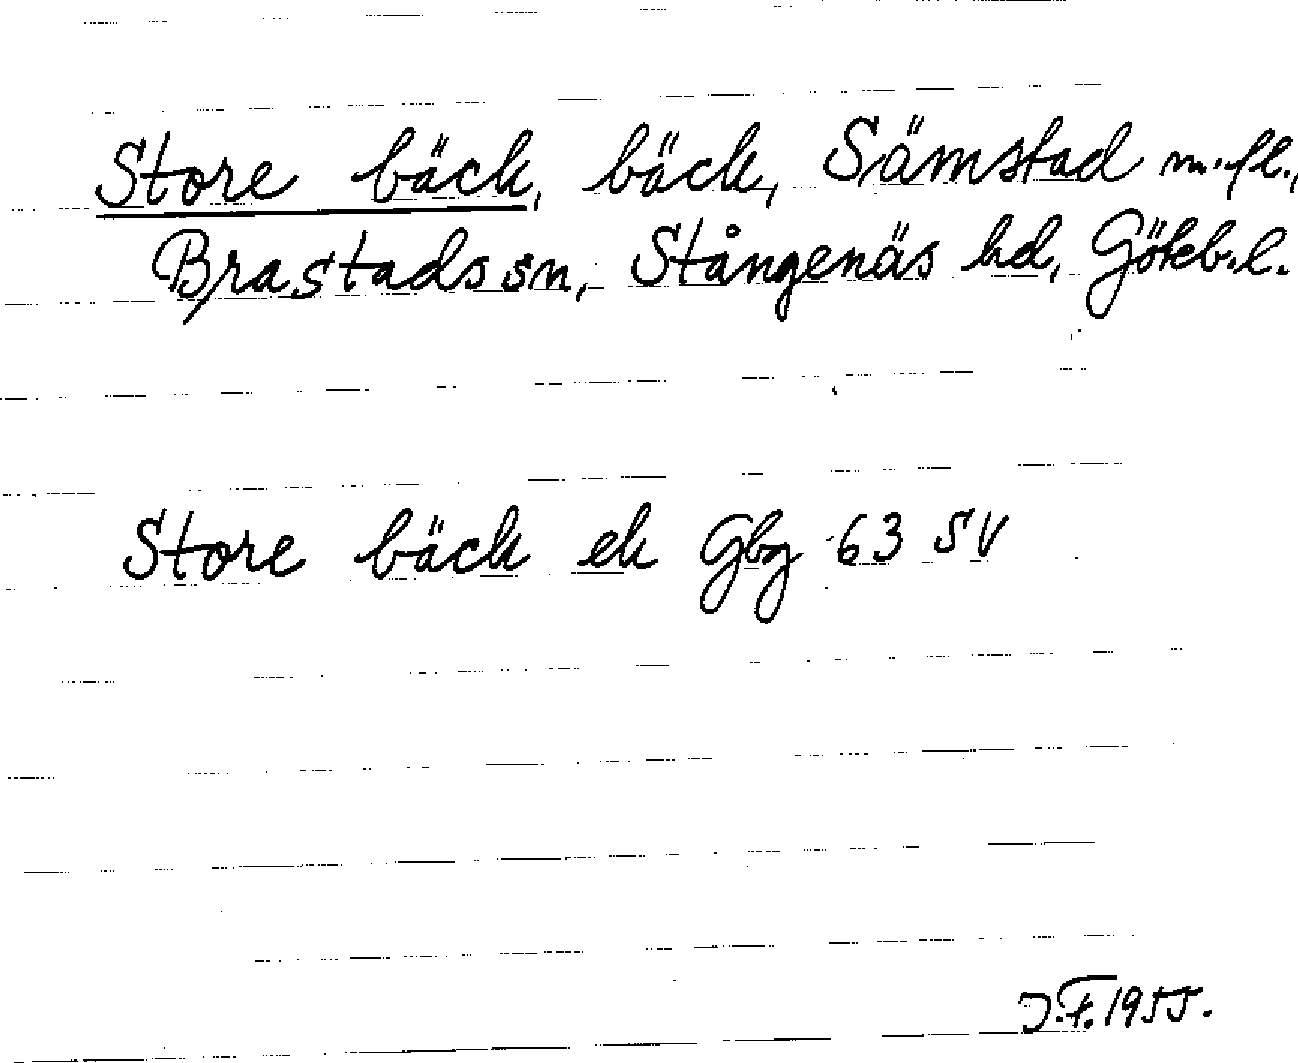 Store bäck, bäck, Sämstad m.fl.,
Brastads sn, Stångenäs hd, Göteb.l.
Store bäck ek Gbg 63 SV
J.F. 1955.